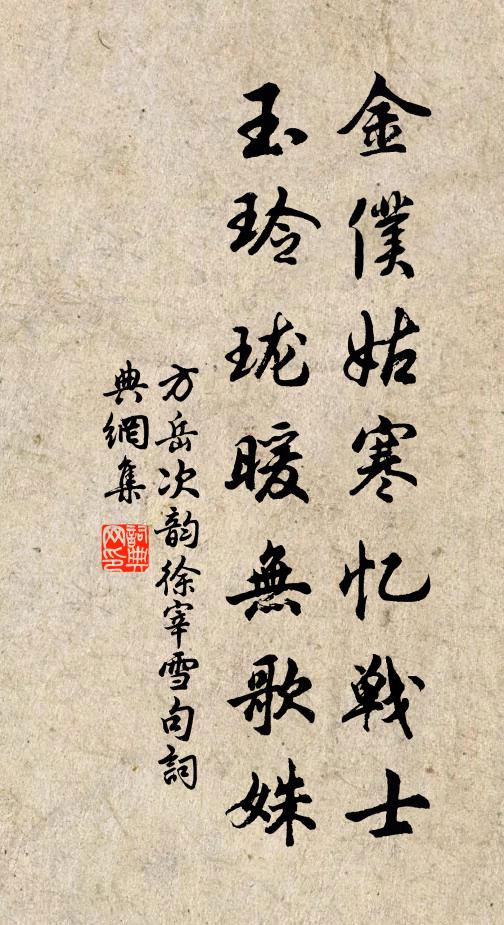 金僕姑寒忆戦士
玉玲珑暖無歌姝
方岳次韵徐宰雪句詞
典網集
詞典
网印